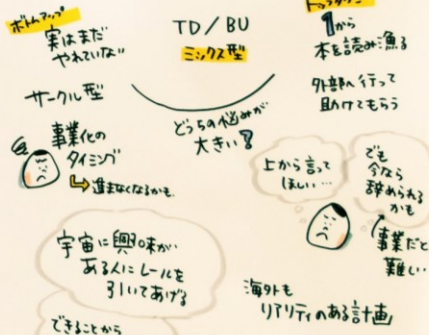 ボトムアップ
実はまだ
やれていない
サークル型
事業化の
タイミング
進まなくなるかも
TD/BU
ミックス型
どっちの悩みが
大きい?
トップダウン
1から
本を読み漁る
外部へ行って
助けてもらう
上から言って
ほしい…
でも
今なら
辞められる
かも
事業だと
難しい…
宇宙に興味が
ある人にレールを
引いてあげる
できることから
海外も
リアリティのある計画